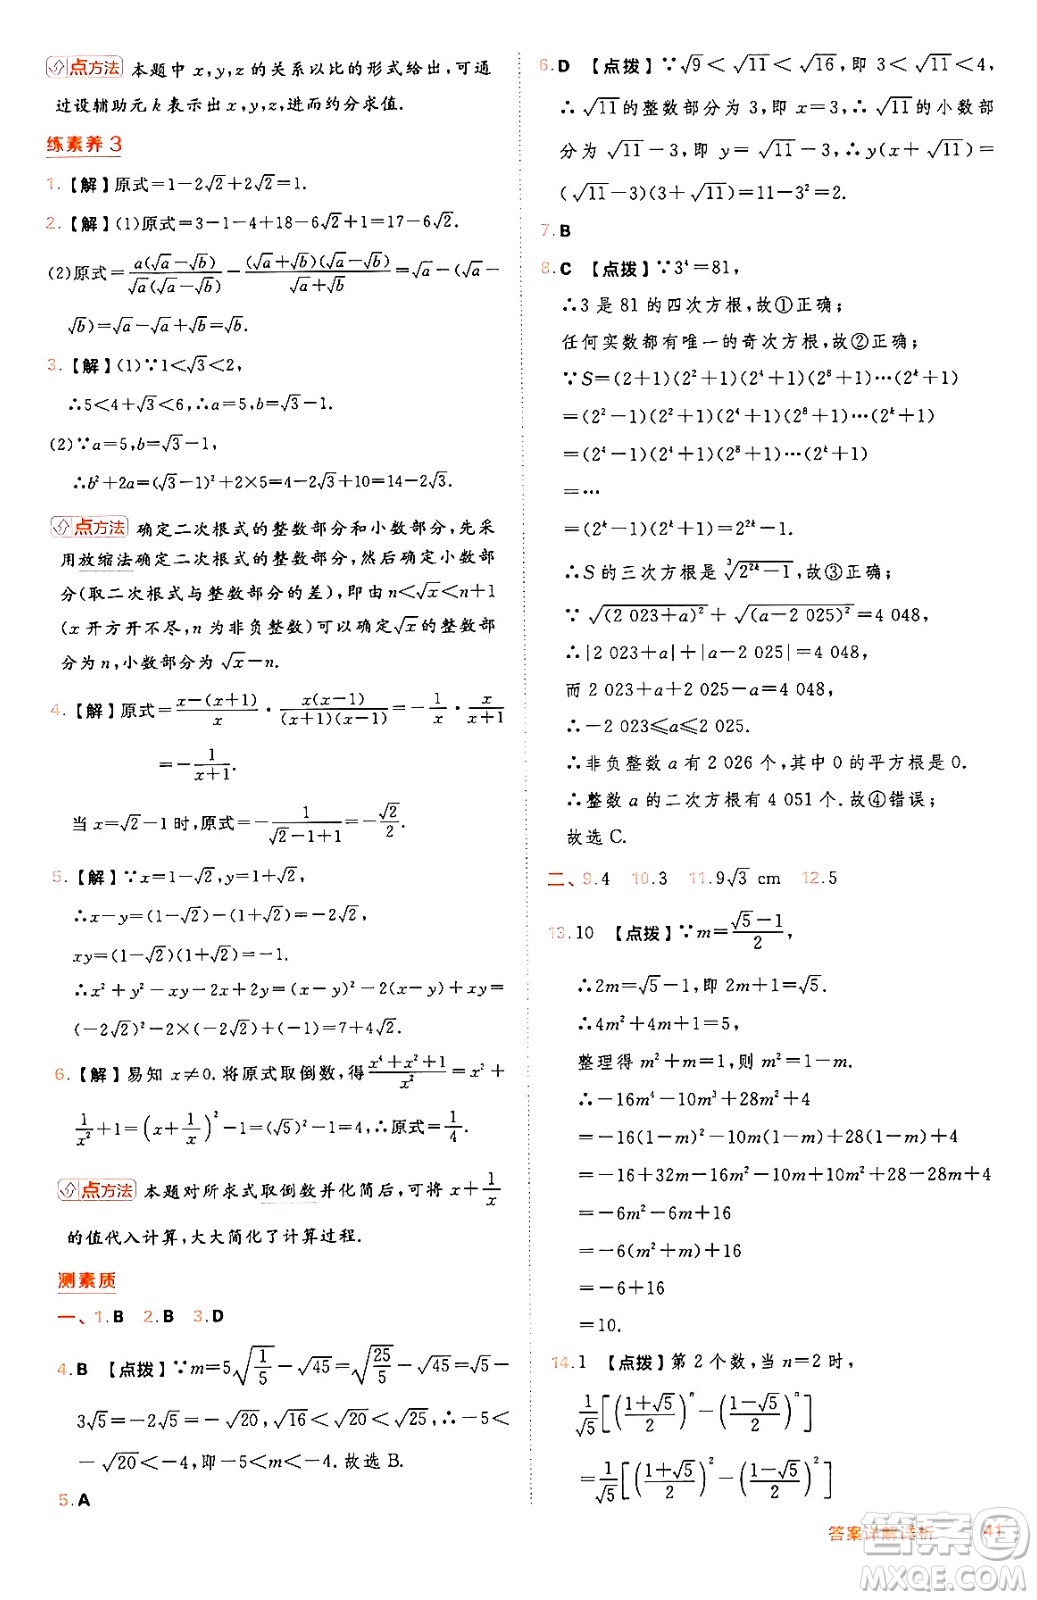 点方法 本题中 x,y,z 的关系以比的形式给出,可通
过设辅助元 k 表示出 x,y,z,进而约分求值.
练素养 3
1.【解】原式=1-2√2+2√2=1.
2.【解】(1)原式=3-1-4+18-6√2+1=17-6√2.
(2)原式=a(√a-√b)/√a(√a-√b)-(√a+√b)(√a-√b)/(√a+√b)=√a-(√a-
√b)=√a-√a+√b=√b.
3.【解】(1)∵1<√3<2,
∴5<4+√3<6,∴a=5,b=√3-1.
(2)∵a=5,b=√3-1,
∴b²+2a=(√3-1)²+2×5=3-2√3+1+10=14-2√3.
点方法 确定二次根式的整数部分和小数部分,先采
用放缩法确定二次根式的整数部分,然后确定小数部
分(取二次根式与整数部分的差),即由 n<√x<n+1
(x 开方开不尽,n 为非负整数)可以确定√x的整数部
分为 n,小数部分为 √x-n.
4.【解】原式=x-(x+1)/x · x(x-1)/(x+1)(x-1)=-1/x · x/(x+1)
=-1/(x+1).
当 x=√2-1时,原式=-1/(√2-1+1)=-√2/2.
5.【解】∵x=1-√2,y=1+√2,
∴x-y=(1-√2)-(1+√2)=-2√2,
xy=(1-√2)(1+√2)=-1.
∴x²+y²-xy-2x+2y=(x-y)²-2(x-y)+xy=
(-2√2)²-2×(-2√2)+(-1)=7+4√2.
6.【解】易知 x≠0.将原式取倒数,得(x⁴+x²+1)/x²=x²+
1/x²+1=(x+1/x)²-1=(√5)²-1=4,∴原式=1/4.
点方法 本题对所求式取倒数并化简后,可将 x+1/x
的值代入计算,大大简化了计算过程.
测素质
一、1.B 2.B 3.D
4.B 【点拨】∵m=5√(1/5)-√45=√(25/5)-√45=√5-
3√5=-2√5=-√20,√16<√20<√25,∴-5<
-√20<-4,即-5<m<-4.故选 B.
5.A
6.D 【点拨】∵√9<√11<√16,即 3<√11<4,
∴√11的整数部分为3,即 x=3,∴√11的小数部
分为 √11-3,即 y=√11-3,∴y(x+√11)=
(√11-3)(3+√11)=11-3²=2.
7.B
8.C 【点拨】∵3⁴=81,
∴3 是 81 的四次方根,故①正确;
任何实数都有唯一的奇次方根,故②正确;
∵S=(2+1)(2²+1)(2⁴+1)(2⁸+1)…(2ᵏ+1)
=(2²-1)(2²+1)(2⁴+1)(2⁸+1)…(2ᵏ+1)
=(2⁴-1)(2⁴+1)(2⁸+1)…(2ᵏ+1)
=…
=(2ᵏ-1)(2ᵏ+1)=2²ᵏ-1,
∴S的三次方根是∛(2²ᵏ-1),故③正确;
∵√(2 023+a)²+√(a-2 025)²=4 048,
∴|2 023+a|+|a-2 025|=4 048,
而 2 023+a+2 025-a=4 048,
∴-2 023≤a≤2 025.
∴非负整数 a 有 2 026个,其中 0 的平方根是 0.
∴整数 a 的二次方根有 4 051 个.故④错误;
故选 C.
二、9.4 10.3 11.9√3 cm 12.5
13.10 【点拨】∵m=(√5-1)/2,
∴2m=√5-1,即 2m+1=√5.
∴4m²+4m+1=5,
整理得 m²+m=1,则 m²=1-m.
∴-16m⁴-10m³+28m²+4
=-16(1-m)²-10m(1-m)+28(1-m)+4
=-16+32m-16m²-10m+10m²+28-28m+4
=-6m²-6m+16
=-6(m²+m)+16
=-6+16
=10.
14.1 【点拨】第 2 个数,当 n=2 时,
1/√5[((1+√5)/2)ⁿ-((1-√5)/2)ⁿ]
=1/√5[((1+√5)/2)²-((1-√5)/2)²]
答案详解详析 41
答案圈
MXQE.COM